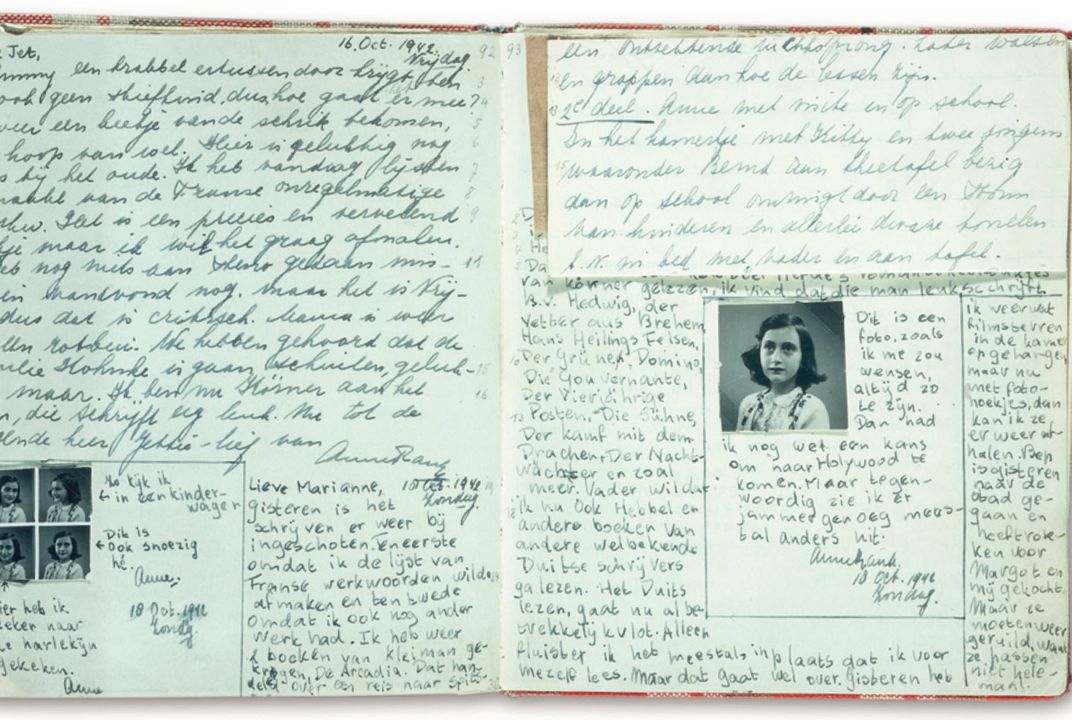 Jet,
16 Oct. 1942
Vrijdag
92
een krabbel ertussendoor krijgt, ben
ook geen stiefkind, dus hoe gaat er mee?
weer een beetje van de schrik bekomen,
hoop van wel. Hier is gelukkig nog
bij het oude. Ik heb vandaag lijsten
van de Franse onregelmatige
Het is een precies en vervelend
maar ik wil het graag afmaken.
nog niets aan Steno gedaan mis-
in vanavond nog. maar het is Vrij-
dus dat is critisch. Mama is weer
We hebben gehoord dat de
is gaan schuilen, geluk-
maar. Ik ben nu Körner aan het
n, die schrijft erg leuk. Nu tot de
heer Jettie-lief van
Anne Frank
Zo kijk ik
in een kinder-
wagen
Dit is
ook snoezig
hé.
Anne.
18 Oct. 1942
Zondag
hier heb ik
zeker naar
de harlekijn
gekeken.
Anne
Lieve Marianne,
18 Oct. 1942
Zondag
gisteren is het
schrijven er weer bij
ingeschoten. Teneerste
omdat ik de lijst van
Franse werkwoorden wilde
afmaken en ten twede
omdat ik ook nog ander
werk had. Ik heb weer
2 boeken van Kleiman ge-
kregen, De Arcadia. Dat han-
deld over een reis naar Spits-
93
een ontzettende luchtsprong. Later walsen
en grappen dan hoe de lessen zijn.
2e deel. Anne met visite en op school.
In het kamertje met Kitty en twee jongens
waaronder Bernd aan theetafel bezig
dan op school omringt door een stoom
van kinderen en allerlei dwaze tonelen
b.v. in bed met vader en aan tafel.
van körner gelezen, ik vind dat die man leuk schrijft.
B.v. Hedwig, der
Vetter aus Brehem,
Hans Heilings Felsen,
Der Grünex Domino,
Die Gouvernante,
Der Vierjährige
Posten, Die Sühne,
Der kamf mit dem
Drachen, Der Nacht-
wächter en zoal
meer. Vader wil dat
ik nu ook Hebbel en
andere boeken van
andere welbekende
Duitse schrijvers
ga lezen. Het Duits
lezen, gaat nu al be-
trekkelijk vlot. Alleen
fluister ik het meestal inplaats dat ik voor
mezelf lees. Maar dat gaat wel over. Gisteren heb
Dit is een
foto, zoals
ik me zou
wensen,
altijd zo
te zijn.
Dan had
ik nog wel een kans
om naar Holywood te
komen. Maar tegen-
woordig zie ik er
jammer genoeg mees-
tal anders uit.
Anne Frank.
18 Oct. 1942
Zondag.
ik weer wat
filmsterren
in de kamer
opgehangen,
maar nu
met foto-
hoekjes, dan
kan ik ze
er weer af-
halen. Bep
is gisteren
naar de
stad ge-
gaan en
heeft rok-
ken voor
Margot en
mij gekocht.
Maar ze
moeten weer
geruild, want
ze passen
niet hele-
maal.